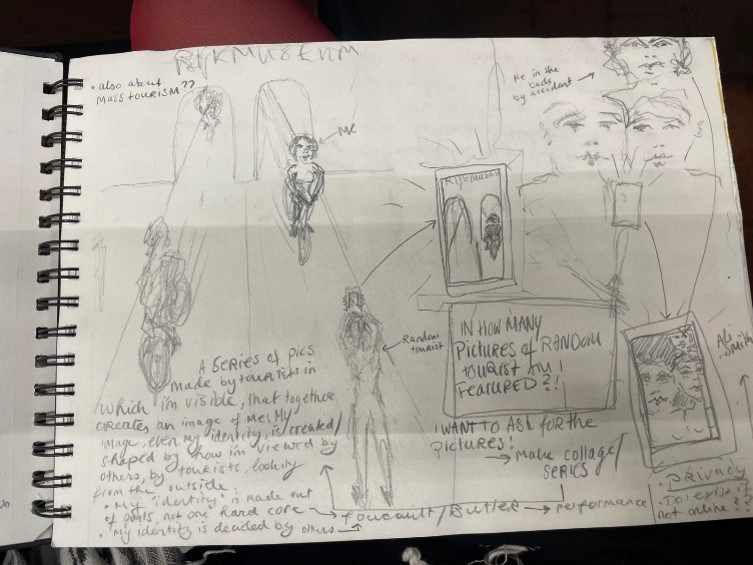 RijkMuseum
• also about
Mass tourism??
Me
Me in the
back
by accident
RijkMuseum
Random
tourist
IN HOW MANY
Pictures of RANDOM
TOURIST AM I
FEATURED?!
I WANT TO ASK for the
pictures!
→ Make collage/
SERIES
A SERIES of pics
made by tourists in
which i'm visible, that together
creates an image of me. My
image, even my identity, is created/
shaped by how im viewed by
others, by tourists, looking
from the outside.
• My 'identity' is made out
of parts, not one hard core → foucault/Butler → performance
• My identity is decided by others
Ali
Smith
• Privacy
• Do i exist if
not online??